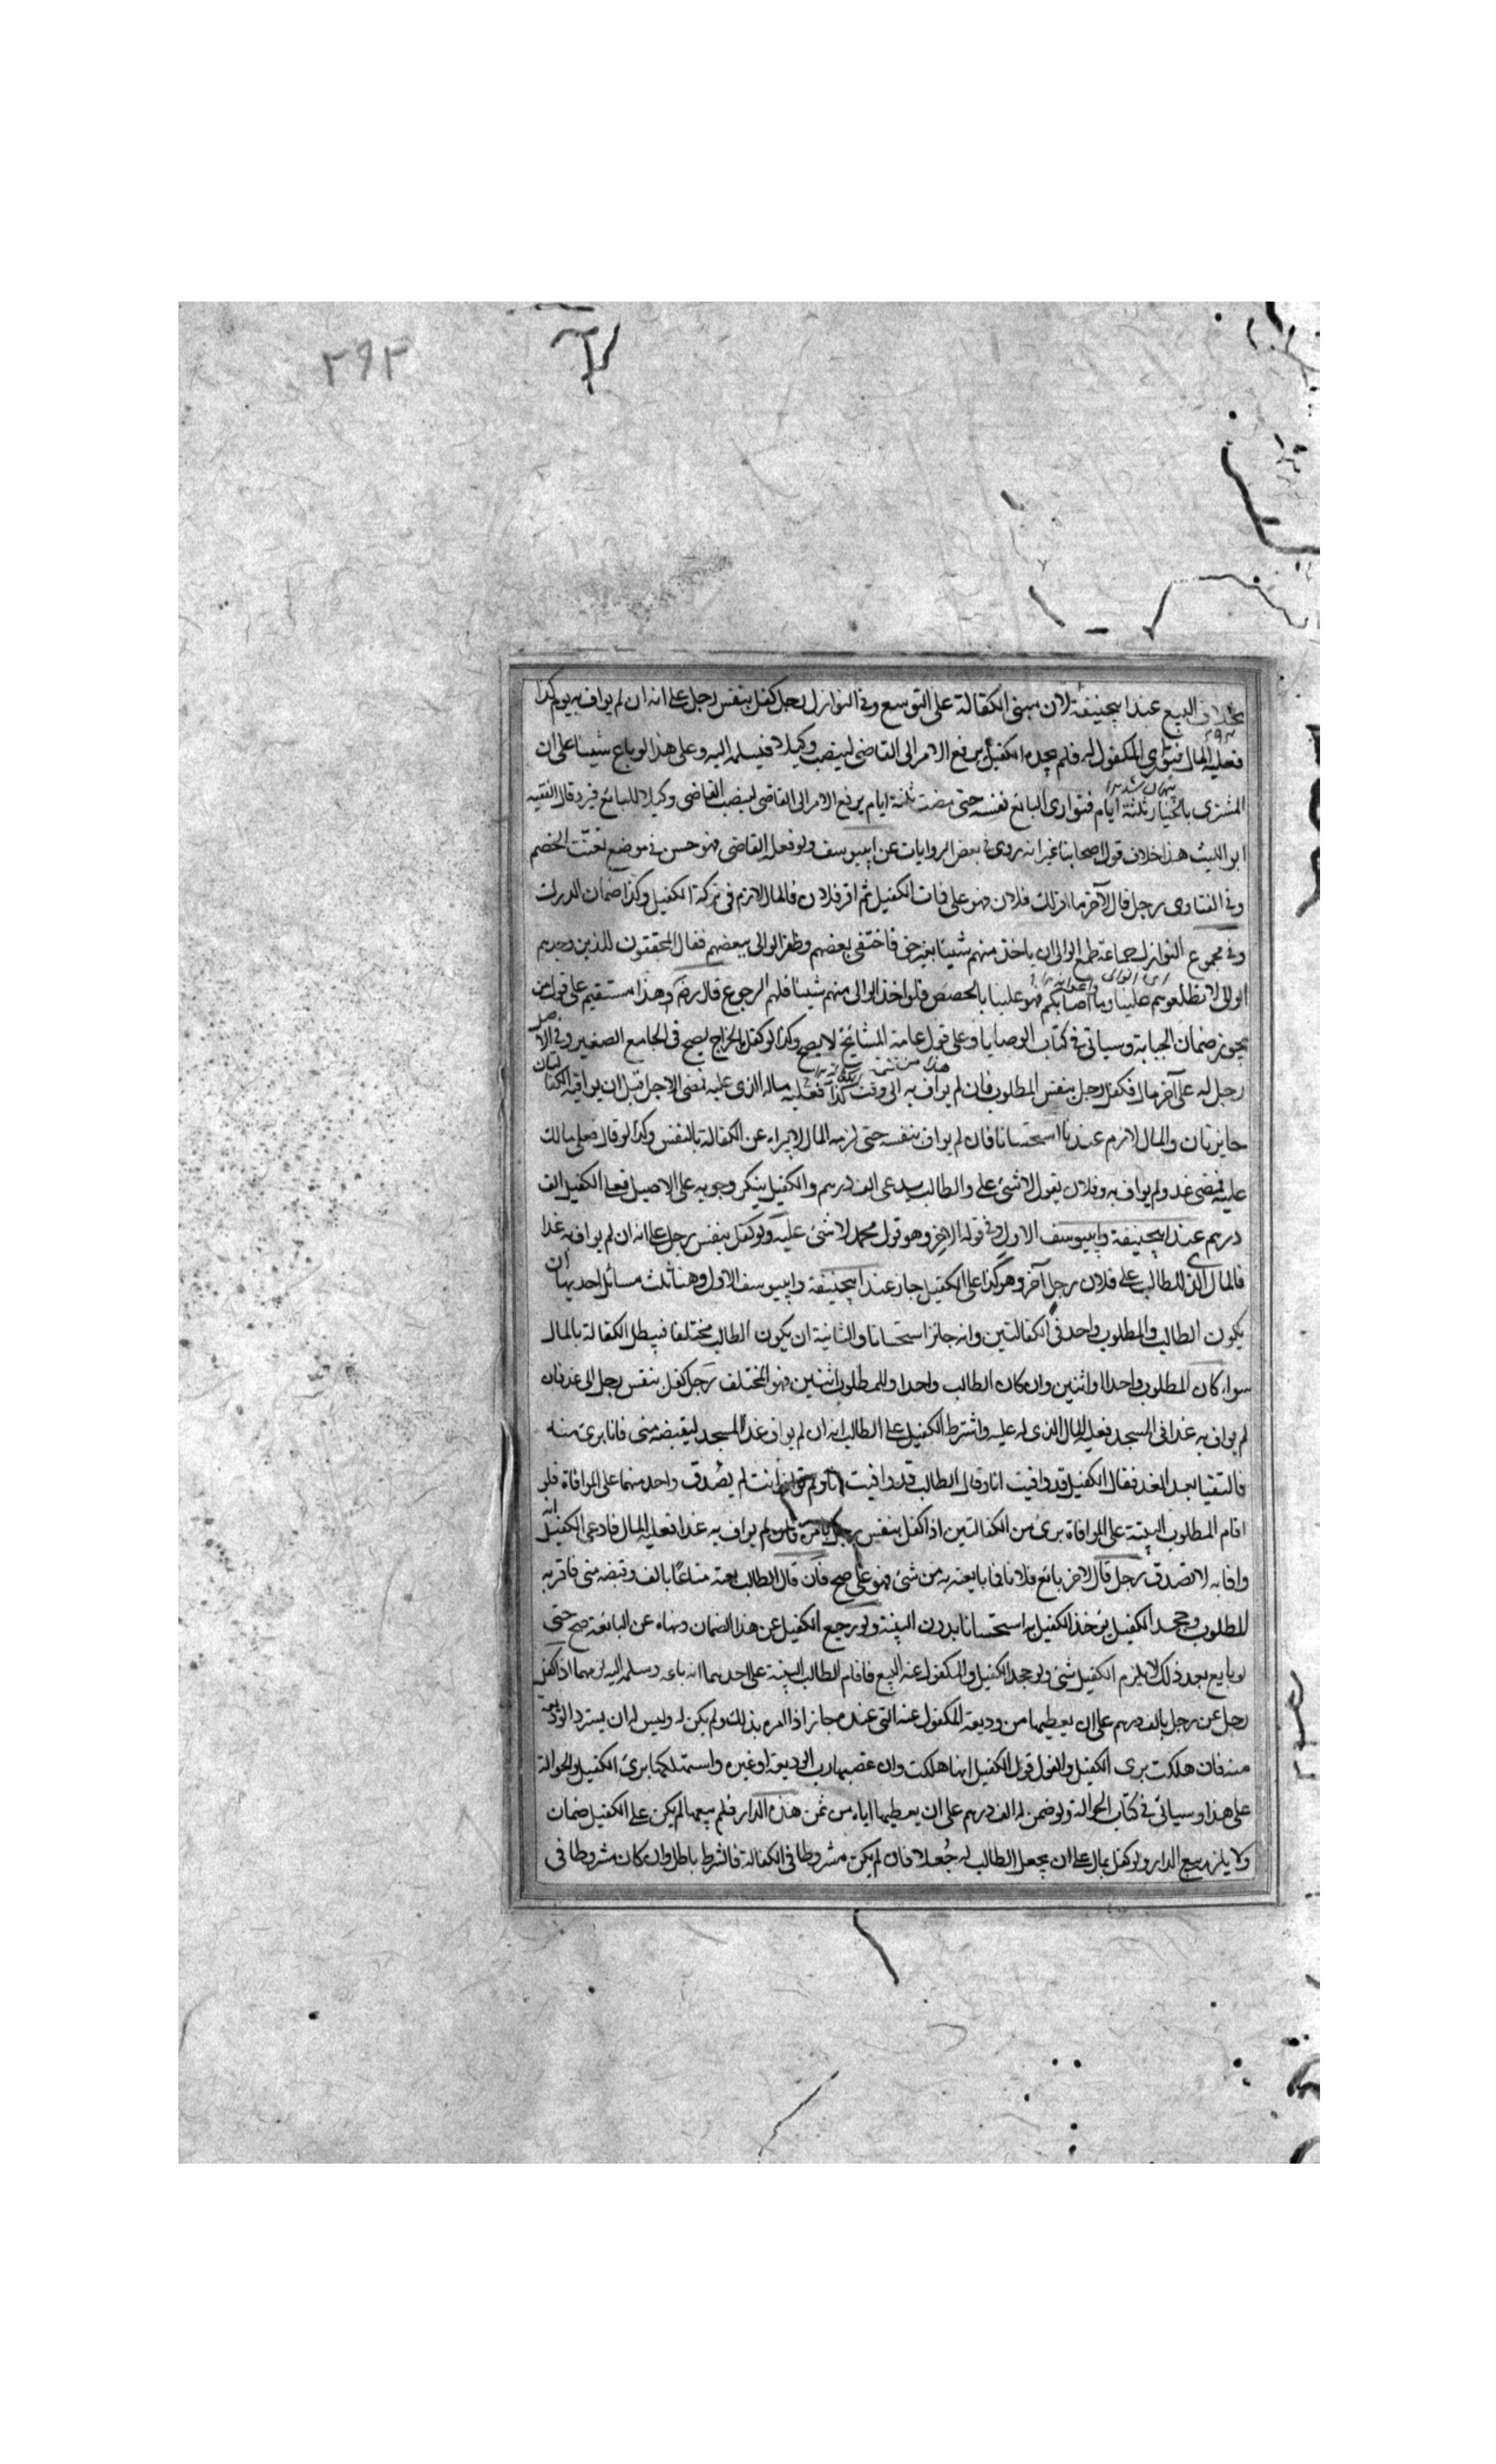 ٢٩٢
بخلاف البيع عند ابيحنيفة لان مبنى الكفالة على التوسع وفى النوازل رجل كفل بنفس رجل على انه ان لم يواف به يوم كذا
فعليه المال فتوارى المكفول له فلم يجده الكفيل يرفع الامر الى القاضى لينصب وكيلا فيسلمه اليه وعلى هذا لو باع شيئا على ان
المشترى بالخيار ثلثة ايام فتوارى البائع نفسه حتى مضت ثلثة ايام يرفع الامر الى القاضى لينصب القاضى وكيلا للبائع فيرد قال الفقيه
ابو الليث هذا خلاف قول اصحابنا غير انه روى فى بعض الروايات عن ابييوسف ولو فعله القاضى فهو حسن فى موضع تعنّت الخصم
وفى الفتاوى رجل قال لآخر ما اقر لك فلان فهو على فمات الكفيل ثم اقر فلان فالمال لازم فى تركة الكفيل وكذا ضمان الدرك
وفى مجموع النوازل جماعة طمع الوالى ان ياخذ منهم شيئا بغير حق فاختفى بعضهم وظفر الوالى ببعضهم فقال المختفون للذين وجدهم
الوالى لا تطلعوهم علينا وما اصابكم فهو علينا بالحصص فلو اخذ الوالى منهم شيئا فلهم الرجوع قال رضه وهذا مستقيم على قول من
يجوز ضمان الجباية وسياتى فى كتاب الوصايا وعلى قول عامة المشائخ لا يصح وكذا لو كفل بالخراج يصح فى الجامع الصغير وفى الاصل
رجل له على آخر مال فكفل رجل بنفس المطلوب فان لم يواف به الى وقت كذا فعليه ماله الذى عليه فمضى الاجل قبل ان يوافيه الكفالتان
جايزتان والمال لازم عندنا استحسانا فان لم يواف بنفسه حتى لزمه المال لا يبراء عن الكفالة بالنفس وكذا لو قال فعلى مالك
عليه فمضى غد ولم يواف به وفلان يقول لا شئ على والطالب يدعى الف درهم والكفيل ينكر وجوبه على الاصيل فعلى الكفيل الف
درهم عند ابيحنيفة وابييوسف الاول وفى قوله الاخر وهو قول محمد لا شئ عليه ولو كفل بنفس رجل على انه ان لم يواف به غدا
فالمال الذى للطالب على فلان رجل آخر وهو كذا على الكفيل جاز عند ابيحنيفة وابييوسف الاول وهنا ثلث مسائل احديها ان
يكون الطالب والمطلوب واحد فى الكفالتين وانه جائز استحسانا والثانية ان يكون الطالب مختلفا فيبطل الكفالة بالمال
سواء كان المطلوب واحدا او اثنين وان كان الطالب واحدا والمطلوب اثنين فهو المختلف رجل كفل بنفس رجل الى غد فان
لم يواف به غدا فى المسجد فعليه المال الذى له عليه واشترط الكفيل على الطالب انه ان لم يواف غدا المسجد ليقبضه منى فانا برئ منه
فالتقيا بعد الغد فقال الكفيل قد وافيت انا وقال الطالب قد وافيت انا ولم تواف انت لم يصدق واحد منهما على الموافاة فلو
اقام المطلوب البينة على الموافاة برئ من الكفالتين اذا كفل بنفس رجل بامره فان لم يواف به غدا فعليه المال فادعى الكفيل انه
وافا به لا تصدق رجل قال لاخر بائع فلانا فما بايعته به من شئ فهو على صح فان قال الطالب بعته متاعا بالف وقبضه منى فاقر به
المطلوب وجحد الكفيل يؤخذ الكفيل به استحسانا بدون البينة ولو رجع الكفيل عن هذا الضمان ونهاه عن البايعة صح حتى
لو بايع بعد ذلك لا يلزم الكفيل شئ ولو جحد الكفيل والمكفول عنه البيع فاقام الطالب البينة على احدهما انه باعه وسلمه اليه لزمهما اذا كفل
رجل عن رجل بالف درهم على ان يعطيها من وديعة المكفول عنه التى عنده جاز اذا امره بذلك ولم يكن له وليس له ان يسترد الوديعة
منه فان هلكت برى الكفيل والقول قول الكفيل انها هلكت وان غصبها رب الوديعة او غيره واستهلكها برئ الكفيل والحوالة
على هذا وسياتى فى كتاب الحوالة ولو ضمن له الف درهم على ان يعطيها اياه من ثمن هذه الدار فلم يبعها لم يكن على الكفيل ضمان
ولا يلزمه بيع الدار ولو كفل بمال على ان يجعل الطالب له جُعلا فان لم يكن مشروطا فى الكفالة فالشرط باطل وان كان مشروطا فى